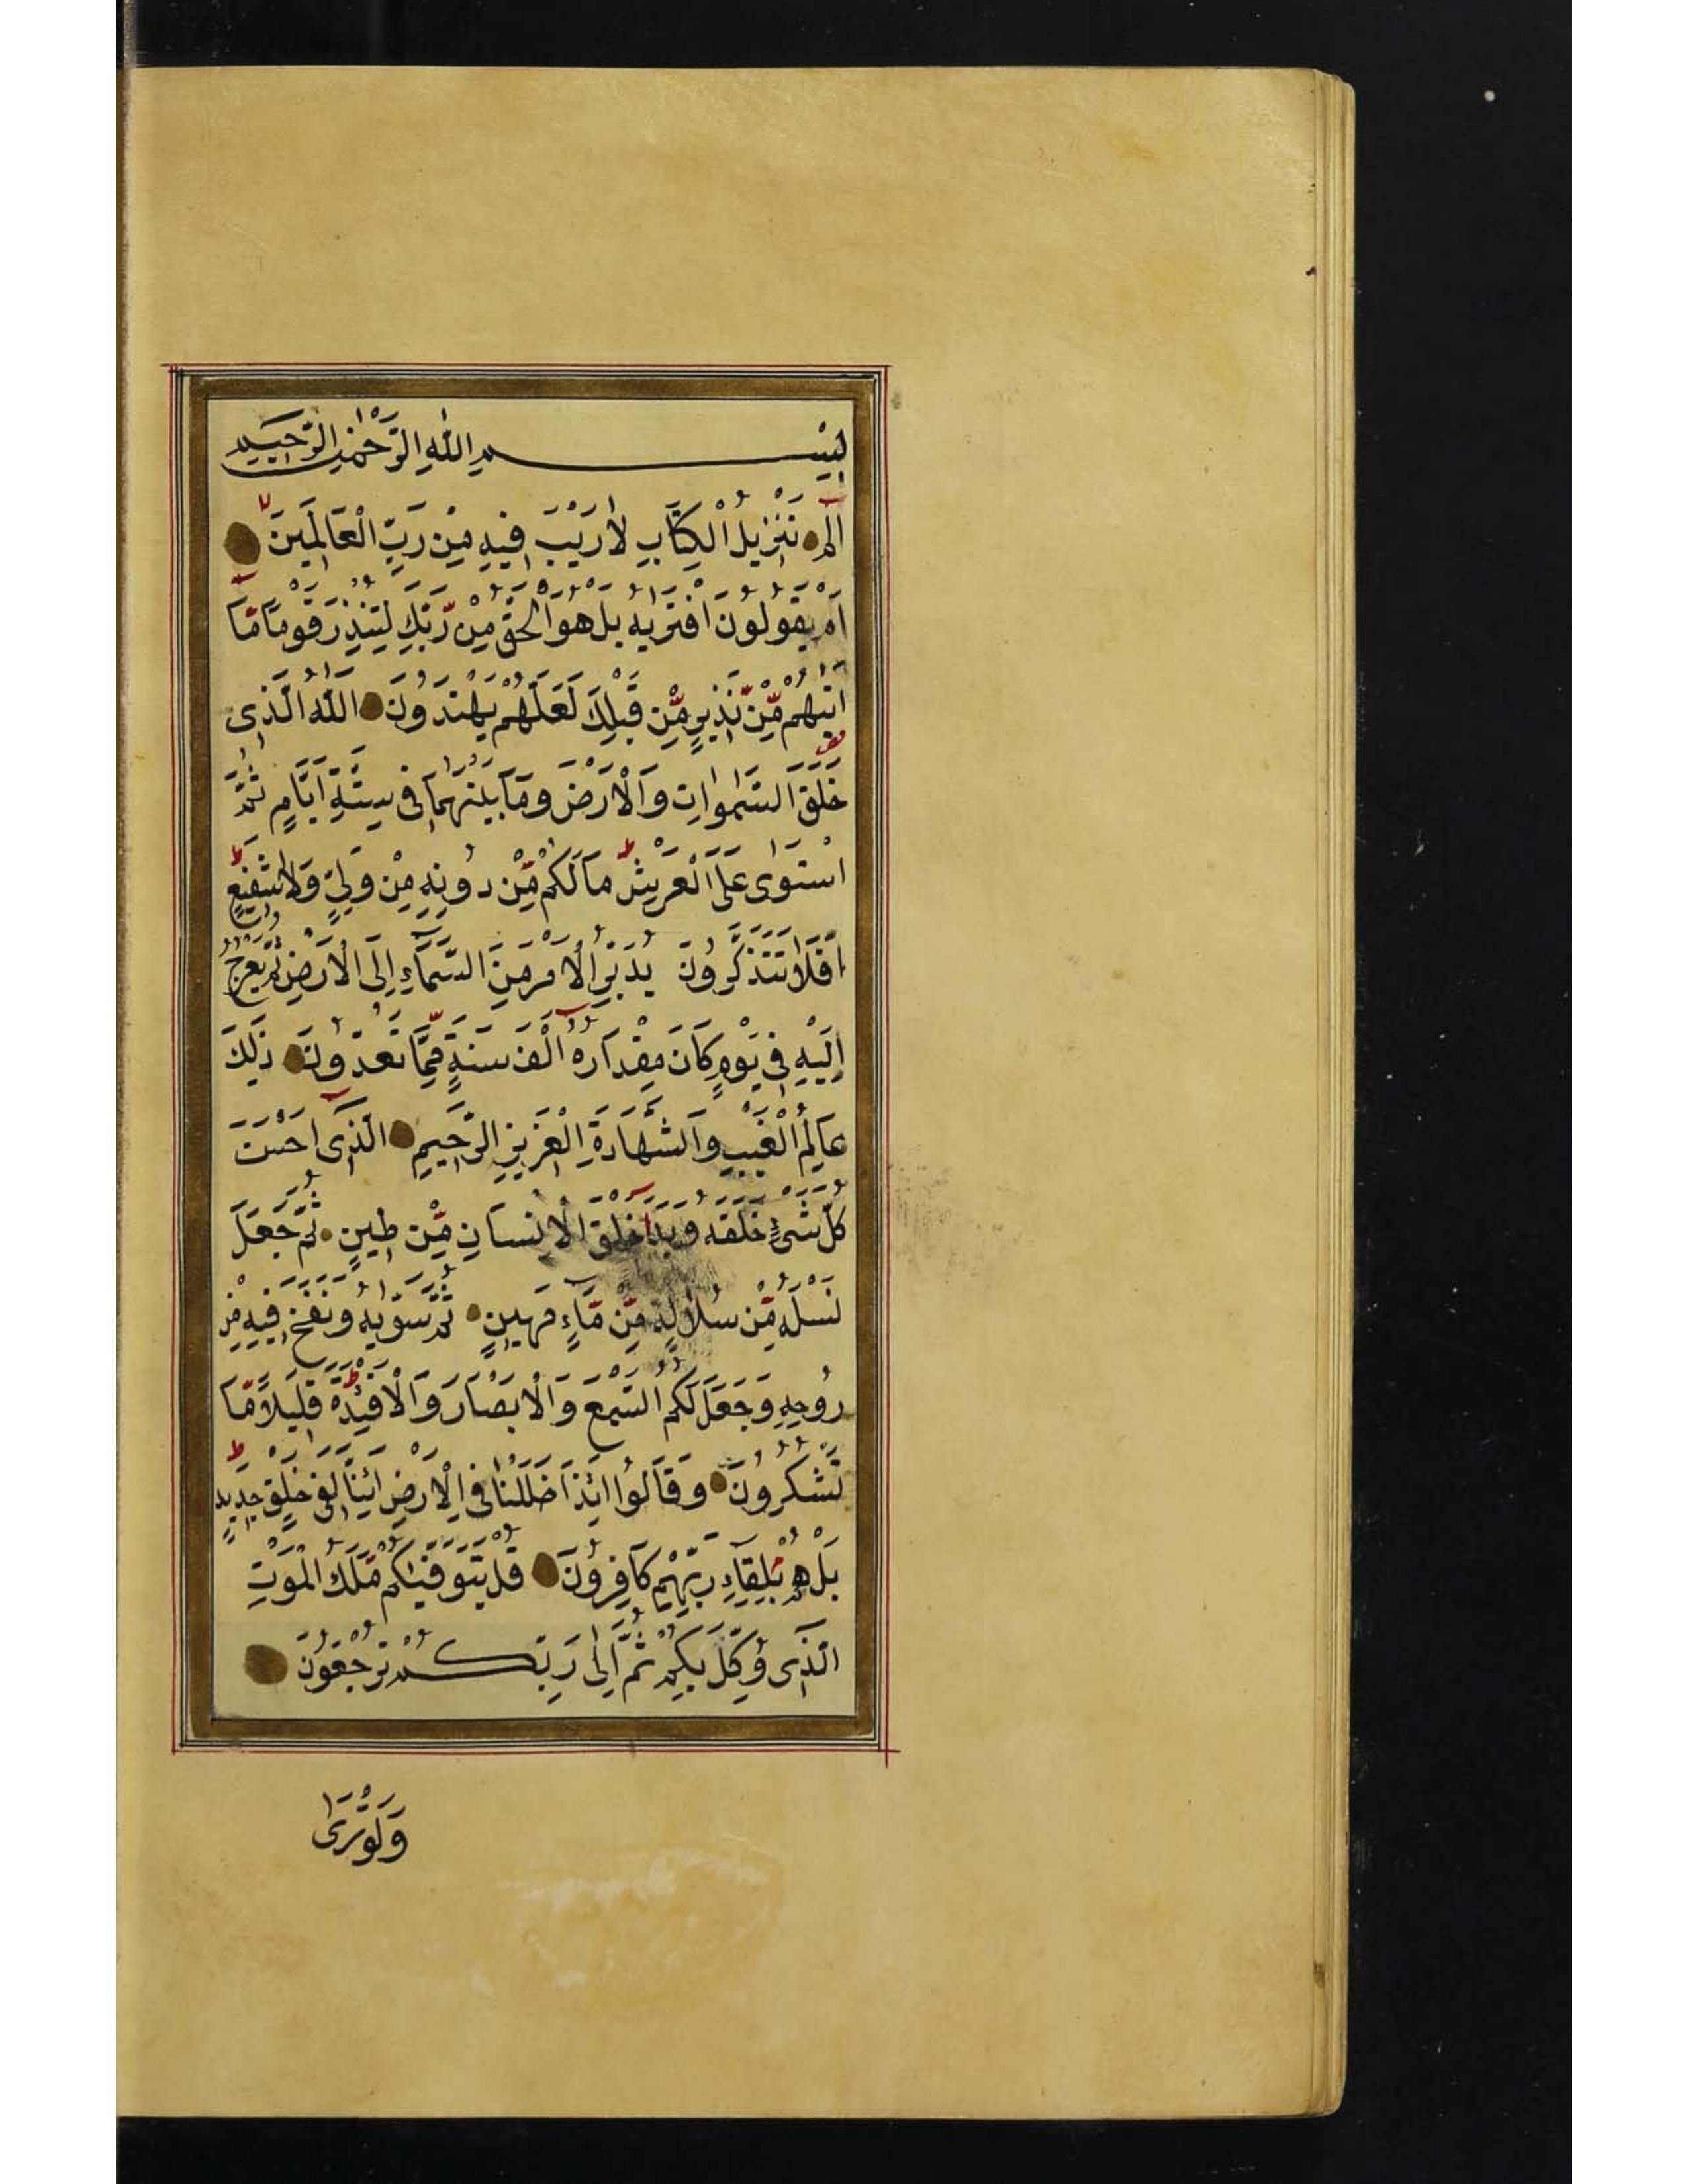 بِسْمِ اللّٰهِ الرَّحْمٰنِ الرَّحِيمِ
الم تَنْزِيلُ الْكِتَابِ لَا رَيْبَ فِيهِ مِنْ رَبِّ الْعَالَمِينَ
اَمْ يَقُولُونَ افْتَرٰيهُ بَلْ هُوَ الْحَقُّ مِنْ رَّبِّكَ لِتُنْذِرَ قَوْمًا مَّا
اَتٰيهُمْ مِّنْ نَّذِيرٍ مِّنْ قَبْلِكَ لَعَلَّهُمْ يَهْتَدُونَ اَللّٰهُ الَّذِى
خَلَقَ السَّمٰوَاتِ وَالْاَرْضَ وَمَا بَيْنَهُمَا فِى سِتَّةِ اَيَّامٍ ثُمَّ
اسْتَوٰى عَلَى الْعَرْشِ مَا لَكُمْ مِّنْ دُونِهِ مِنْ وَلِيٍّ وَلَا شَفِيعٍ
اَفَلَا تَتَذَكَّرُونَ يُدَبِّرُ الْاَمْرَ مِنَ السَّمَآءِ اِلَى الْاَرْضِ ثُمَّ يَعْرُجُ
اِلَيْهِ فِى يَوْمٍ كَانَ مِقْدَارُهُ اَلْفَ سَنَةٍ مِّمَّا تَعُدُّونَ ذٰلِكَ
عَالِمُ الْغَيْبِ وَالشَّهَادَةِ الْعَزِيزِ الرَّحِيمِ الَّذِى اَحْسَنَ
كُلَّ شَىْءٍ خَلَقَهُ وَبَدَاَ خَلْقَ الْاِنْسَانِ مِّنْ طِينٍ ثُمَّ جَعَلَ
نَسْلَهُ مِّنْ سُلَالَةٍ مِّنْ مَّآءٍ مَهِينٍ ثُمَّ سَوّٰيهُ وَنَفَخَ فِيهِ مِنْ
رُوحِهِ وَجَعَلَ لَكُمُ السَّمْعَ وَالْاَبْصَارَ وَالْاَفْئِدَةَ قَلِيلًا مَّا
تَشْكُرُونَ وَقَالُوا اَئِذَا ضَلَلْنَا فِى الْاَرْضِ اَئِنَّا لَفِى خَلْقٍ جَدِيدٍ
بَلْ هُمْ بِلِقَآءِ رَبِّهِمْ كَافِرُونَ قُلْ يَتَوَفّٰيكُمْ مَّلَكُ الْمَوْتِ
الَّذِى وُكِّلَ بِكُمْ ثُمَّ اِلٰى رَبِّكُمْ تُرْجَعُونَ
وَلَوْ تَرٰى